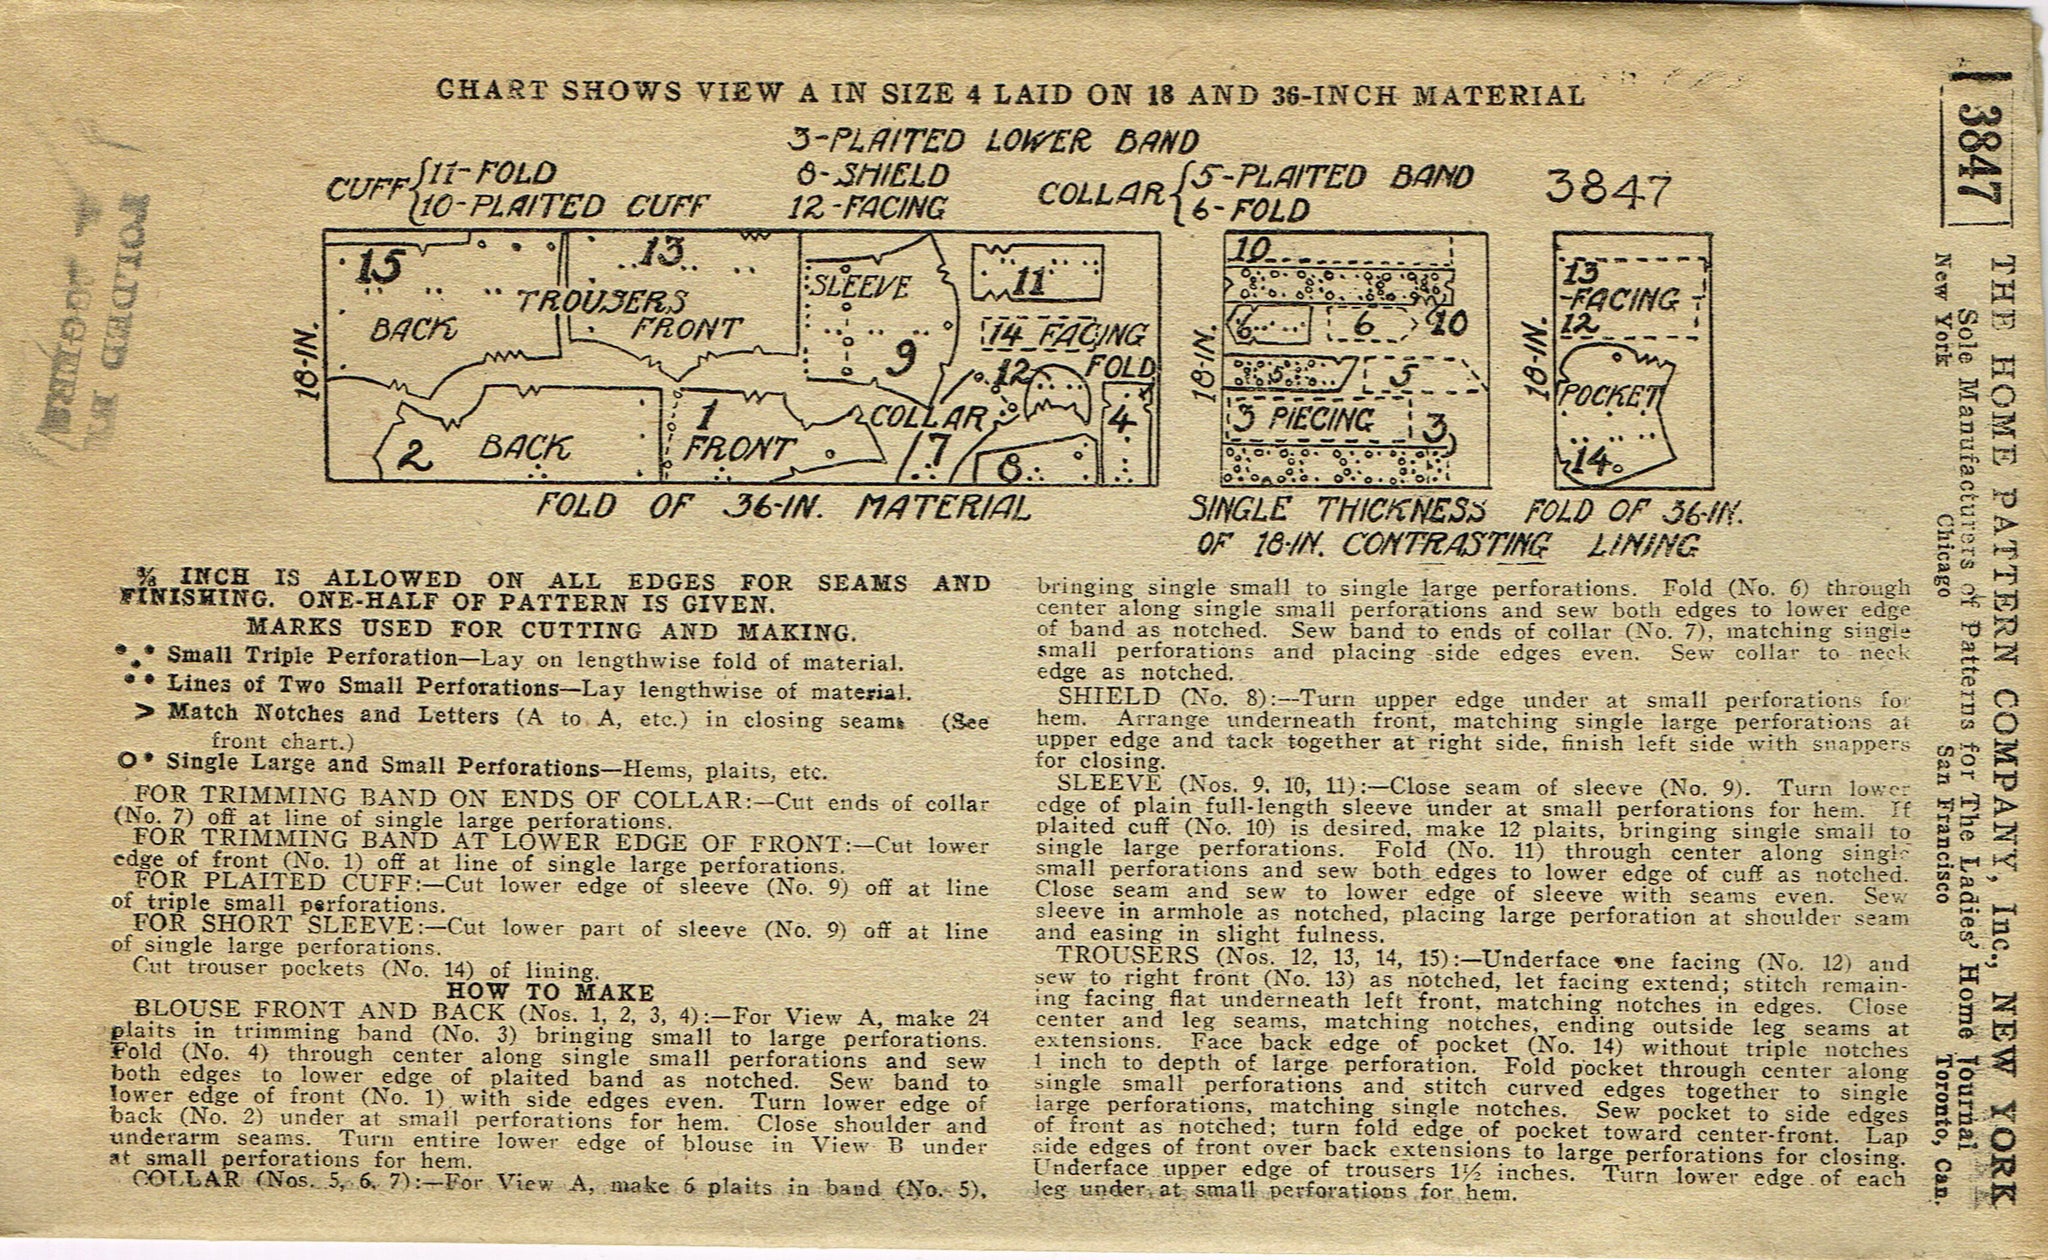 CHART SHOWS VIEW A IN SIZE 4 LAID ON 18 AND 36-INCH MATERIAL
3-PLAITED LOWER BAND
CUFF { 11-FOLD
10-PLAITED CUFF
8-SHIELD
12-FACING
COLLAR { 5-PLAITED BAND
6-FOLD
3847
18-IN.
15
BACK
TROUSERS
13
FRONT
SLEEVE
9
11
14 FACING
12
FOLD
4
COLLAR
7
8
2
BACK
1
FRONT
FOLD OF 36-IN. MATERIAL
18-IN.
10
10
6
6
5
5
3 PIECING
3
SINGLE THICKNESS
OF 18-IN. CONTRASTING
18-IN.
13
FACING
12
POCKET
14
FOLD OF 36-IN.
LINING
⅜ INCH IS ALLOWED ON ALL EDGES FOR SEAMS AND
FINISHING. ONE-HALF OF PATTERN IS GIVEN.
MARKS USED FOR CUTTING AND MAKING.
Small Triple Perforation—Lay on lengthwise fold of material.
Lines of Two Small Perforations—Lay lengthwise of material.
> Match Notches and Letters (A to A, etc.) in closing seams (See
front chart.)
Single Large and Small Perforations—Hems, plaits, etc.
FOR TRIMMING BAND ON ENDS OF COLLAR:—Cut ends of collar
(No. 7) off at line of single large perforations.
FOR TRIMMING BAND AT LOWER EDGE OF FRONT:—Cut lower
edge of front (No. 1) off at line of single large perforations.
FOR PLAITED CUFF:—Cut lower edge of sleeve (No. 9) off at line
of triple small perforations.
FOR SHORT SLEEVE:—Cut lower part of sleeve (No. 9) off at line
of single large perforations.
Cut trouser pockets (No. 14) of lining.
HOW TO MAKE
BLOUSE FRONT AND BACK (Nos. 1, 2, 3, 4):—For View A, make 24
plaits in trimming band (No. 3) bringing small to large perforations.
Fold (No. 4) through center along single small perforations and sew
both edges to lower edge of plaited band as notched. Sew band to
lower edge of front (No. 1) with side edges even. Turn lower edge of
back (No. 2) under at small perforations for hem. Close shoulder and
underarm seams. Turn entire lower edge of blouse in View B under
at small perforations for hem.
COLLAR (Nos. 5, 6, 7):—For View A, make 6 plaits in band (No. 5),
bringing single small to single large perforations. Fold (No. 6) through
center along single small perforations and sew both edges to lower edge
of band as notched. Sew band to ends of collar (No. 7), matching single
small perforations and placing side edges even. Sew collar to neck
edge as notched.
SHIELD (No. 8):—Turn upper edge under at small perforations for
hem. Arrange underneath front, matching single large perforations at
upper edge and tack together at right side, finish left side with snappers
for closing.
SLEEVE (Nos. 9, 10, 11):—Close seam of sleeve (No. 9). Turn lower
edge of plain full-length sleeve under at small perforations for hem. If
plaited cuff (No. 10) is desired, make 12 plaits, bringing single small to
single large perforations. Fold (No. 11) through center along single
small perforations and sew both edges to lower edge of cuff as notched.
Close seam and sew to lower edge of sleeve with seams even. Sew
sleeve in armhole as notched, placing large perforation at shoulder seam
and easing in slight fulness.
TROUSERS (Nos. 12, 13, 14, 15):—Underface one facing (No. 12) and
sew to right front (No. 13) as notched, let facing extend; stitch remain-
ing facing flat underneath left front, matching notches in edges. Close
center and leg seams, matching notches, ending outside leg seams at
extensions. Face back edge of pocket (No. 14) without triple notches
1 inch to depth of large perforation. Fold pocket through center along
single small perforations and stitch curved edges together to single
large perforations, matching single notches. Sew pocket to side edges
of front as notched; turn fold edge of pocket toward center-front. Lap
side edges of front over back extensions to large perforations for closing.
Underface upper edge of trousers 1½ inches. Turn lower edge of each
leg under at small perforations for hem.
3847
THE HOME PATTERN COMPANY, Inc., NEW YORK
Sole Manufacturers of Patterns for The Ladies' Home Journal
New York Chicago San Francisco Toronto, Can.
FOLDED